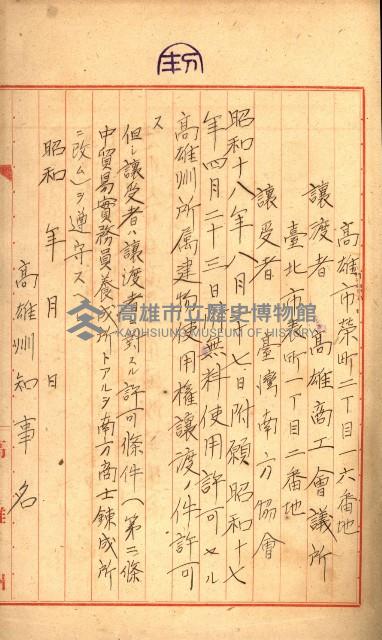 高雄市榮町二丁目一六番地
讓渡者 高雄商工會議所
臺北市表町一丁目二番地
讓受者 臺灣南方協會
昭和十八年八月十七日附願昭和十七
年四月二十三日無料使用許可セル
高雄州所属建物使用權讓渡ノ件許可
ス
但シ讓受者ハ讓渡者ニ對スル許可條件(第二條
中貿易實務員養成所トアルヲ南方商士錬成所
ニ改ム)ヲ遵守スヘシ
昭和 年 月 日
高雄州知事名
高雄市立歷史博物館
KAOHSIUNG MUSEUM OF HISTORY
高雄州